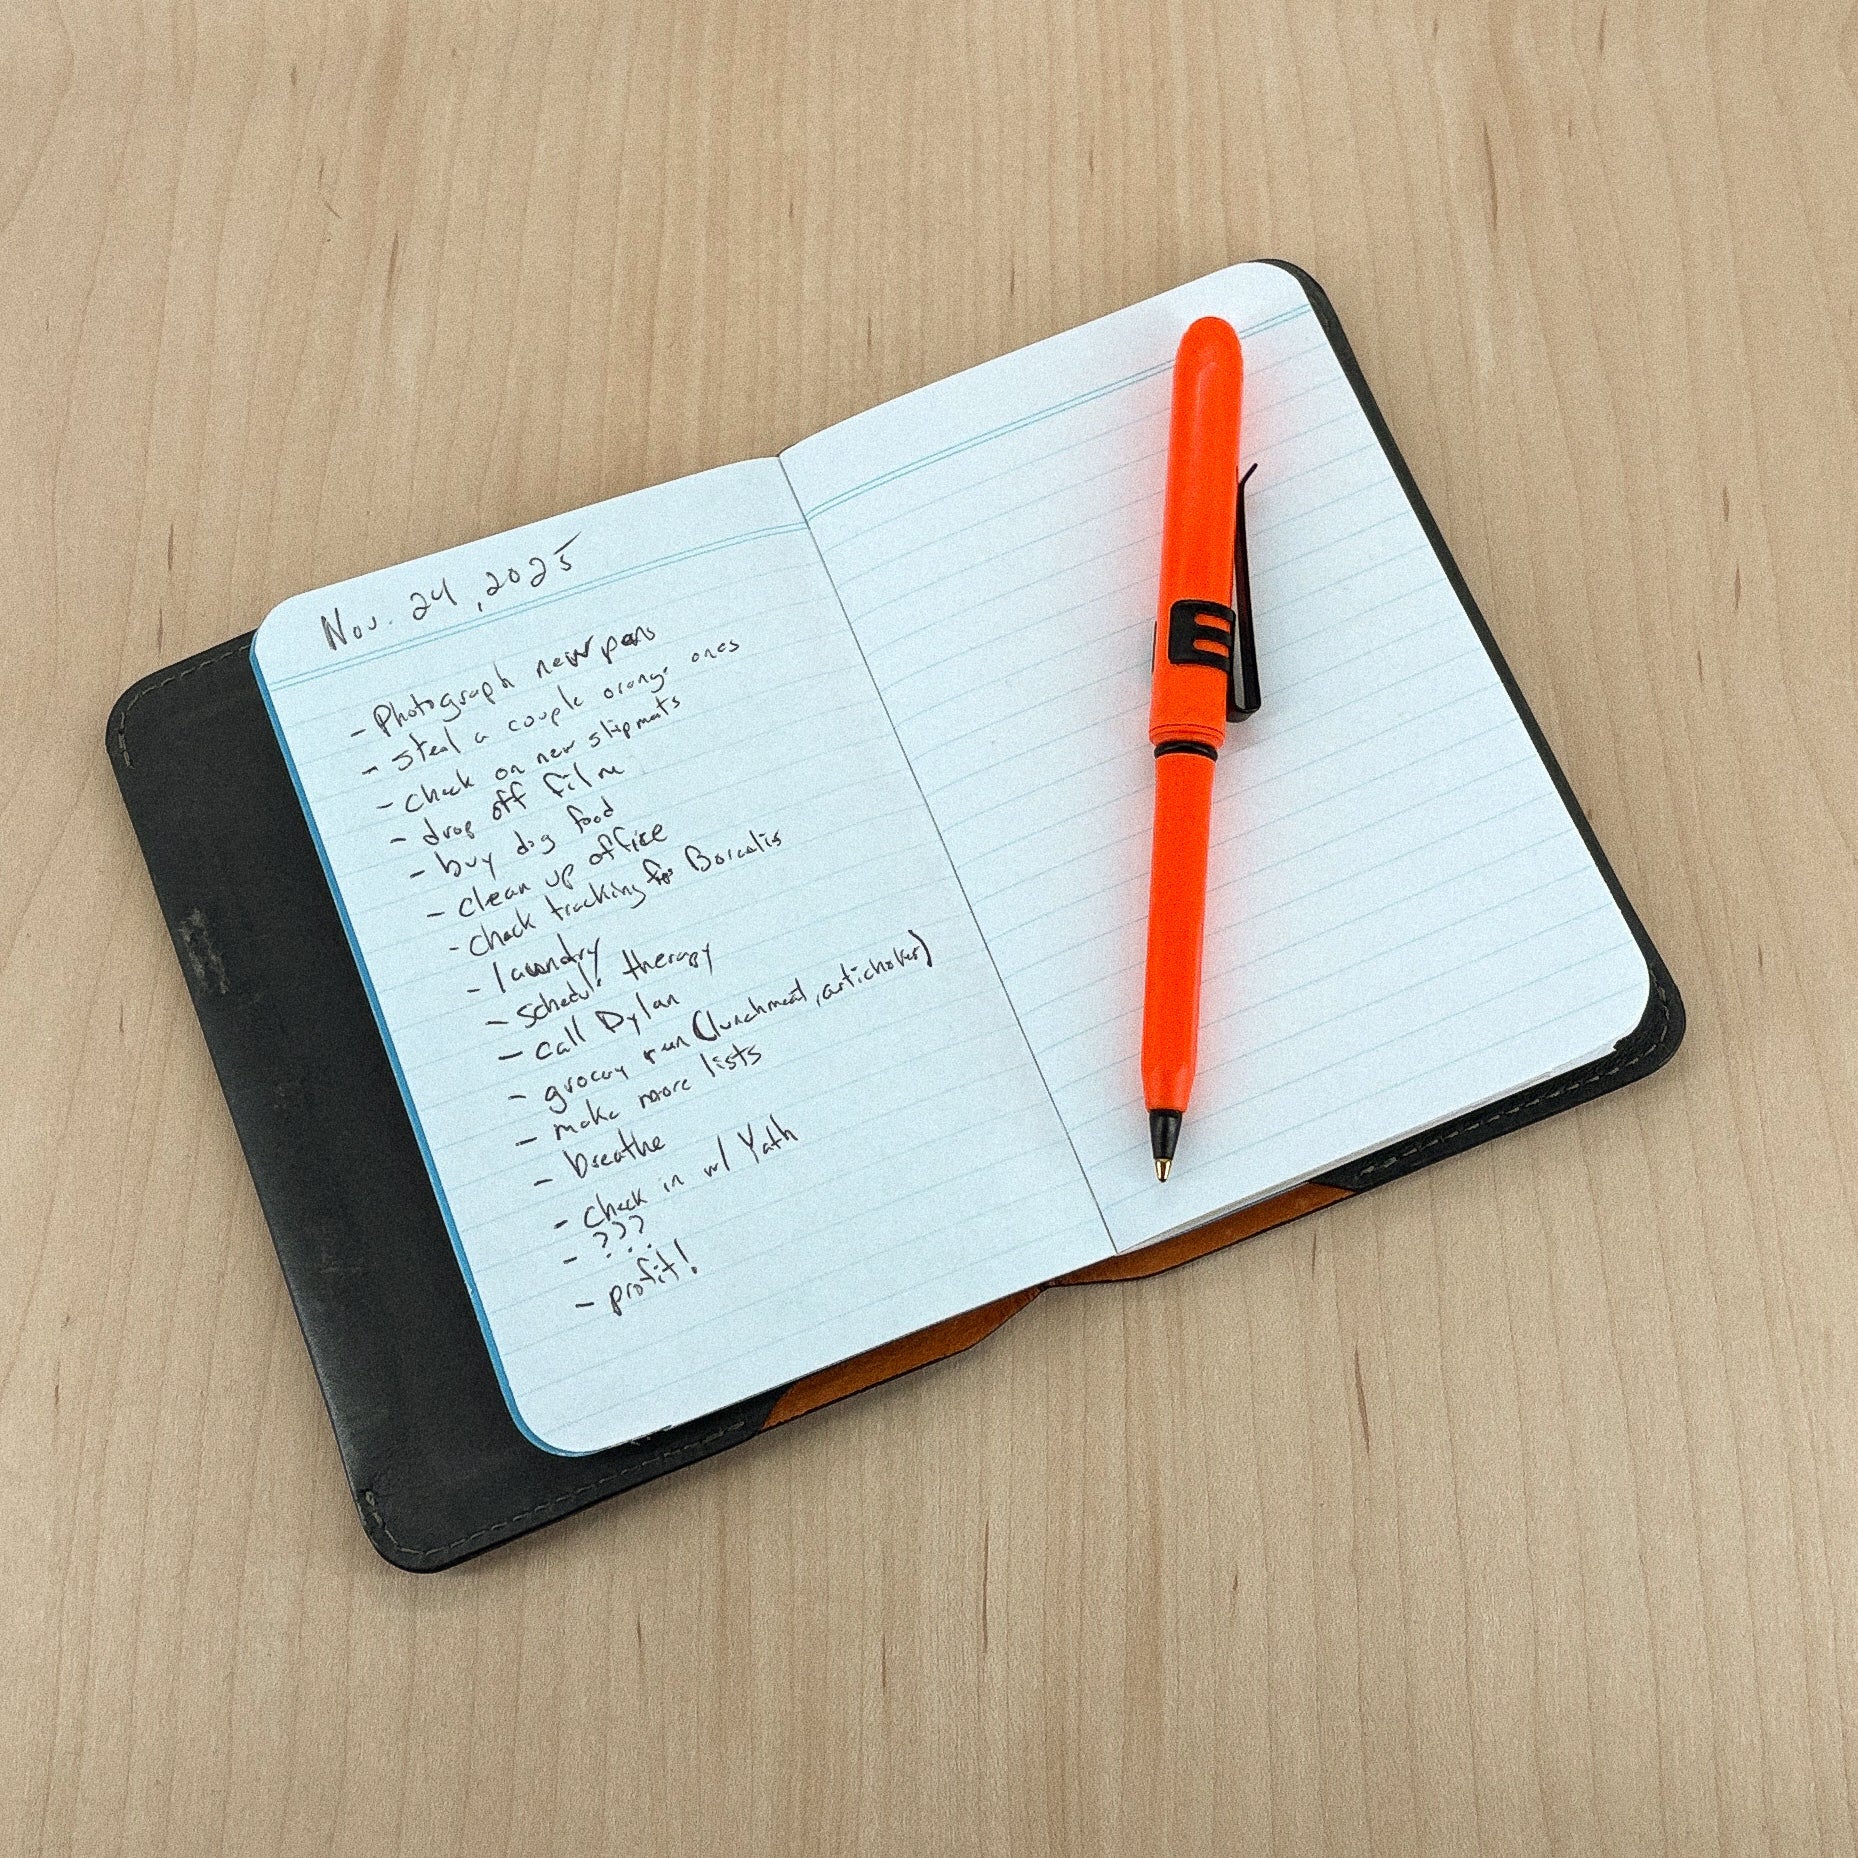 Nov. 24, 2025
- Photograph new pens
- steal a couple orange ones
- check on new shipmats
- drop off film
- buy dog food
- clean up office
- check tracking for Borealis
- laundry
- schedule therapy
- call Dylan
- grocery run (lunchmeat, artichokes)
- make more lists
- breathe
- check in w/ Yath
- ???
- profit!